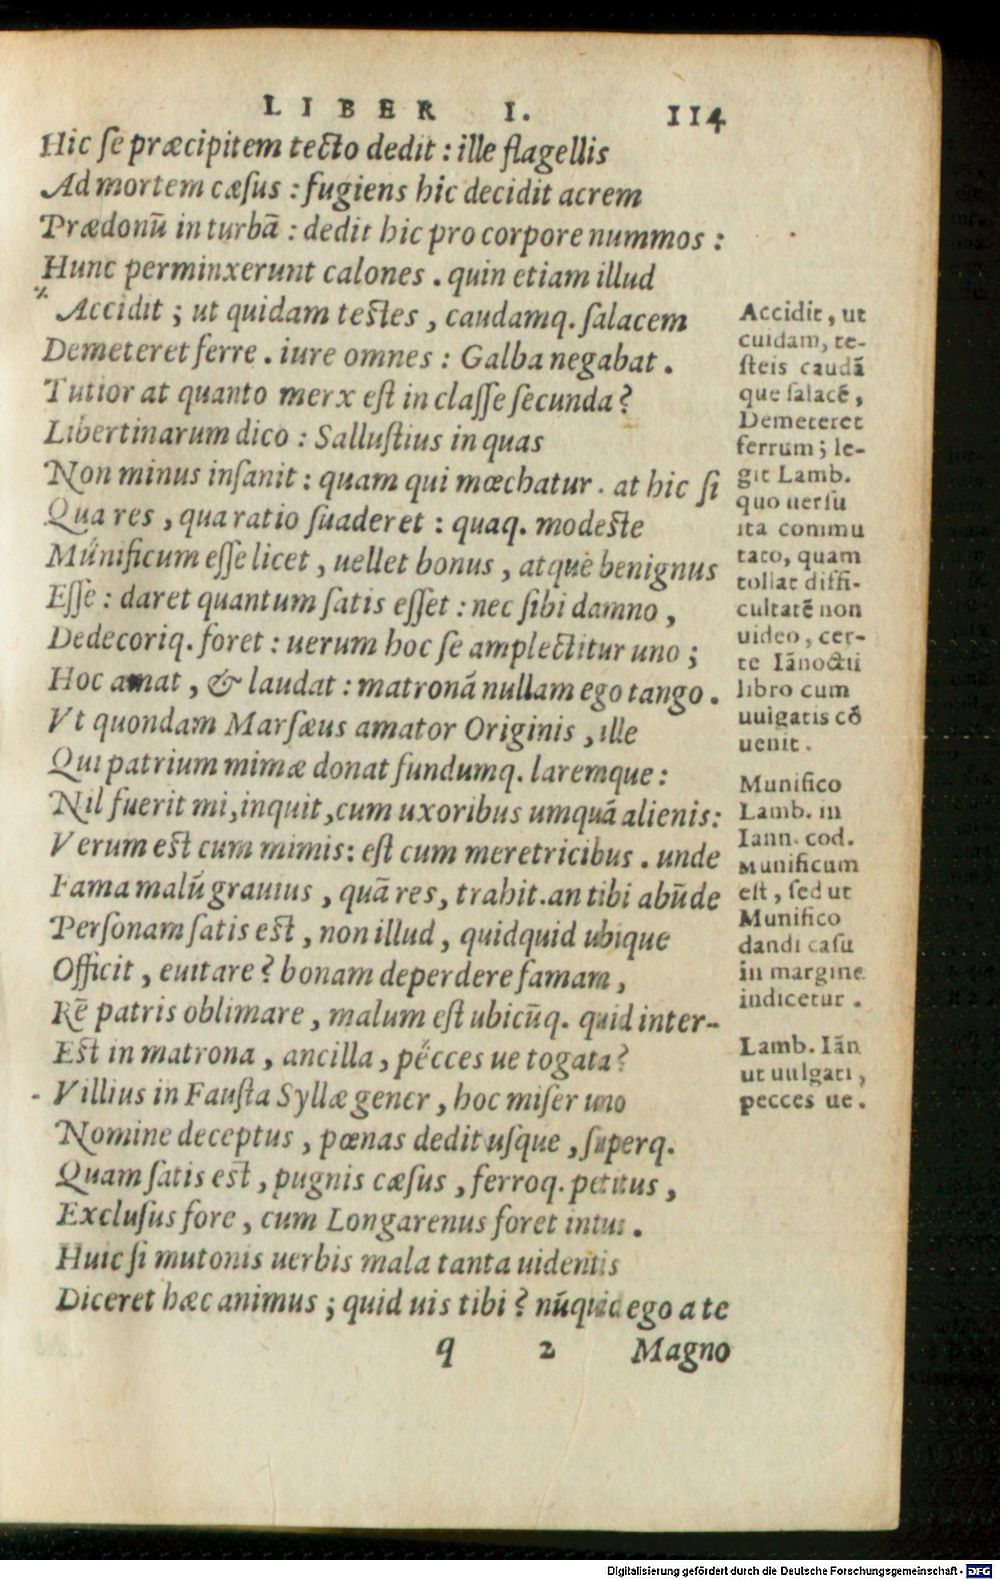 LIBER I. 114
Hic ſe præcipitem tecto dedit : ille flagellis
Ad mortem cæſus : fugiens hic decidit acrem
Prædonū in turbā : dedit hic pro corpore nummos :
Hunc perminxerunt calones . quin etiam illud
Accidit ; ut quidam teſtes , caudamq. ſalacem
Demeteret ferre . iure omnes : Galba negabat .
Tutior at quanto merx eſt in claſſe ſecunda?
Libertinarum dico : Salluſtius in quas
Non minus inſanit : quam qui mœchatur . at hic ſi
Qua res , qua ratio ſuaderet : quaq. modeſte
Munificum eſſe licet , uellet bonus , atque benignus
Eſſe : daret quantum ſatis eſſet : nec ſibi damno ,
Dedecoriq. foret : uerum hoc ſe amplectitur uno ;
Hoc amat , & laudat : matronā nullam ego tango .
Vt quondam Marſæus amator Originis , ille
Qui patrium mimæ donat fundumq. laremque :
Nil fuerit mi, inquit, cum uxoribus umquā alienis:
Verum eſt cum mimis: eſt cum meretricibus . unde
Fama malū grauius , quā res, trahit. an tibi abūde
Perſonam ſatis eſt , non illud , quidquid ubique
Officit , euitare? bonam deperdere famam ,
Rē patris oblimare , malum eſt ubicūq. quid inter-
Eſt in matrona , ancilla, pecces ue togata?
Villius in Fauſta Syllæ gener , hoc miſer uno
Nomine deceptus , pœnas dedit uſque , ſuperq.
Quam ſatis eſt , pugnis cæſus , ferroq. petitus ,
Excluſus fore , cum Longarenus foret intus .
Huic ſi mutonis uerbis mala tanta uidentis
Diceret hæc animus ; quid uis tibi? nūquid ego a te
q 2 Magno
Accidit, ut
cuidam, te-
ſteis caudā
que ſalacē,
Demeteret
ferrum; le-
git Lamb.
quo uerſu
ita commu
tato, quam
tollat diffi-
cultatē non
uideo, cer-
te Iānoctii
libro cum
uulgatis cō
uenit.
Munifico
Lamb. in
Iann. cod.
Munificum
eſt, ſed ut
Munifico
dandi caſu
in margine
indicetur.
Lamb. Iān
ut uulgati,
pecces ue.
Digitalisierung gefördert durch die Deutsche Forschungsgemeinschaft - DFG